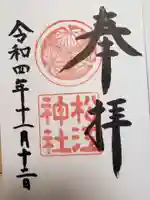 奉拝
松澤
神社
令和四年十一月十三日